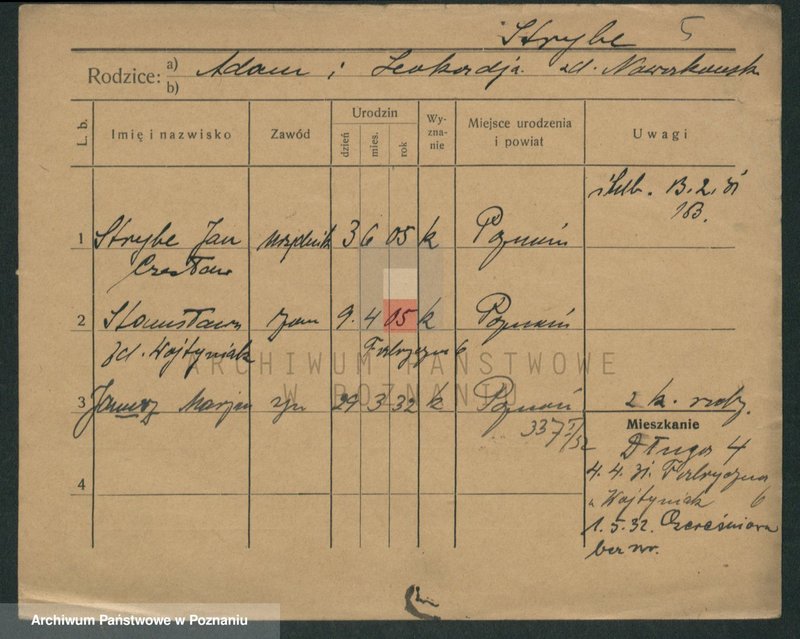 Strybe 5
Rodzice: a) Adam i Leokadja zd. Nowakowsk
b)
L. b. Imię i nazwisko Zawód Urodzin dzień mies. rok Wyznanie Miejsce urodzenia i powiat Uwagi
ślub. 13.2.31
1 Strybe Jan urzędnik 3 6 05 k Poznań
Czesław
2 Stanisława żona 9. 4 05 k Poznań
zd. Wojtyniak Fabryczna 6
ARCHIWUM PAŃSTWOWE
W POZNANIU
3 Janusz Marjan syn 29 3 32 k Poznań
337 I/32
2 k.
Mieszkanie
Długa 4
4
4. 4. 31. Fabryczna 6
u Wojtyniak
1. 5. 32. Czereśniowa
bez nr.
Archiwum Państwowe w Poznaniu